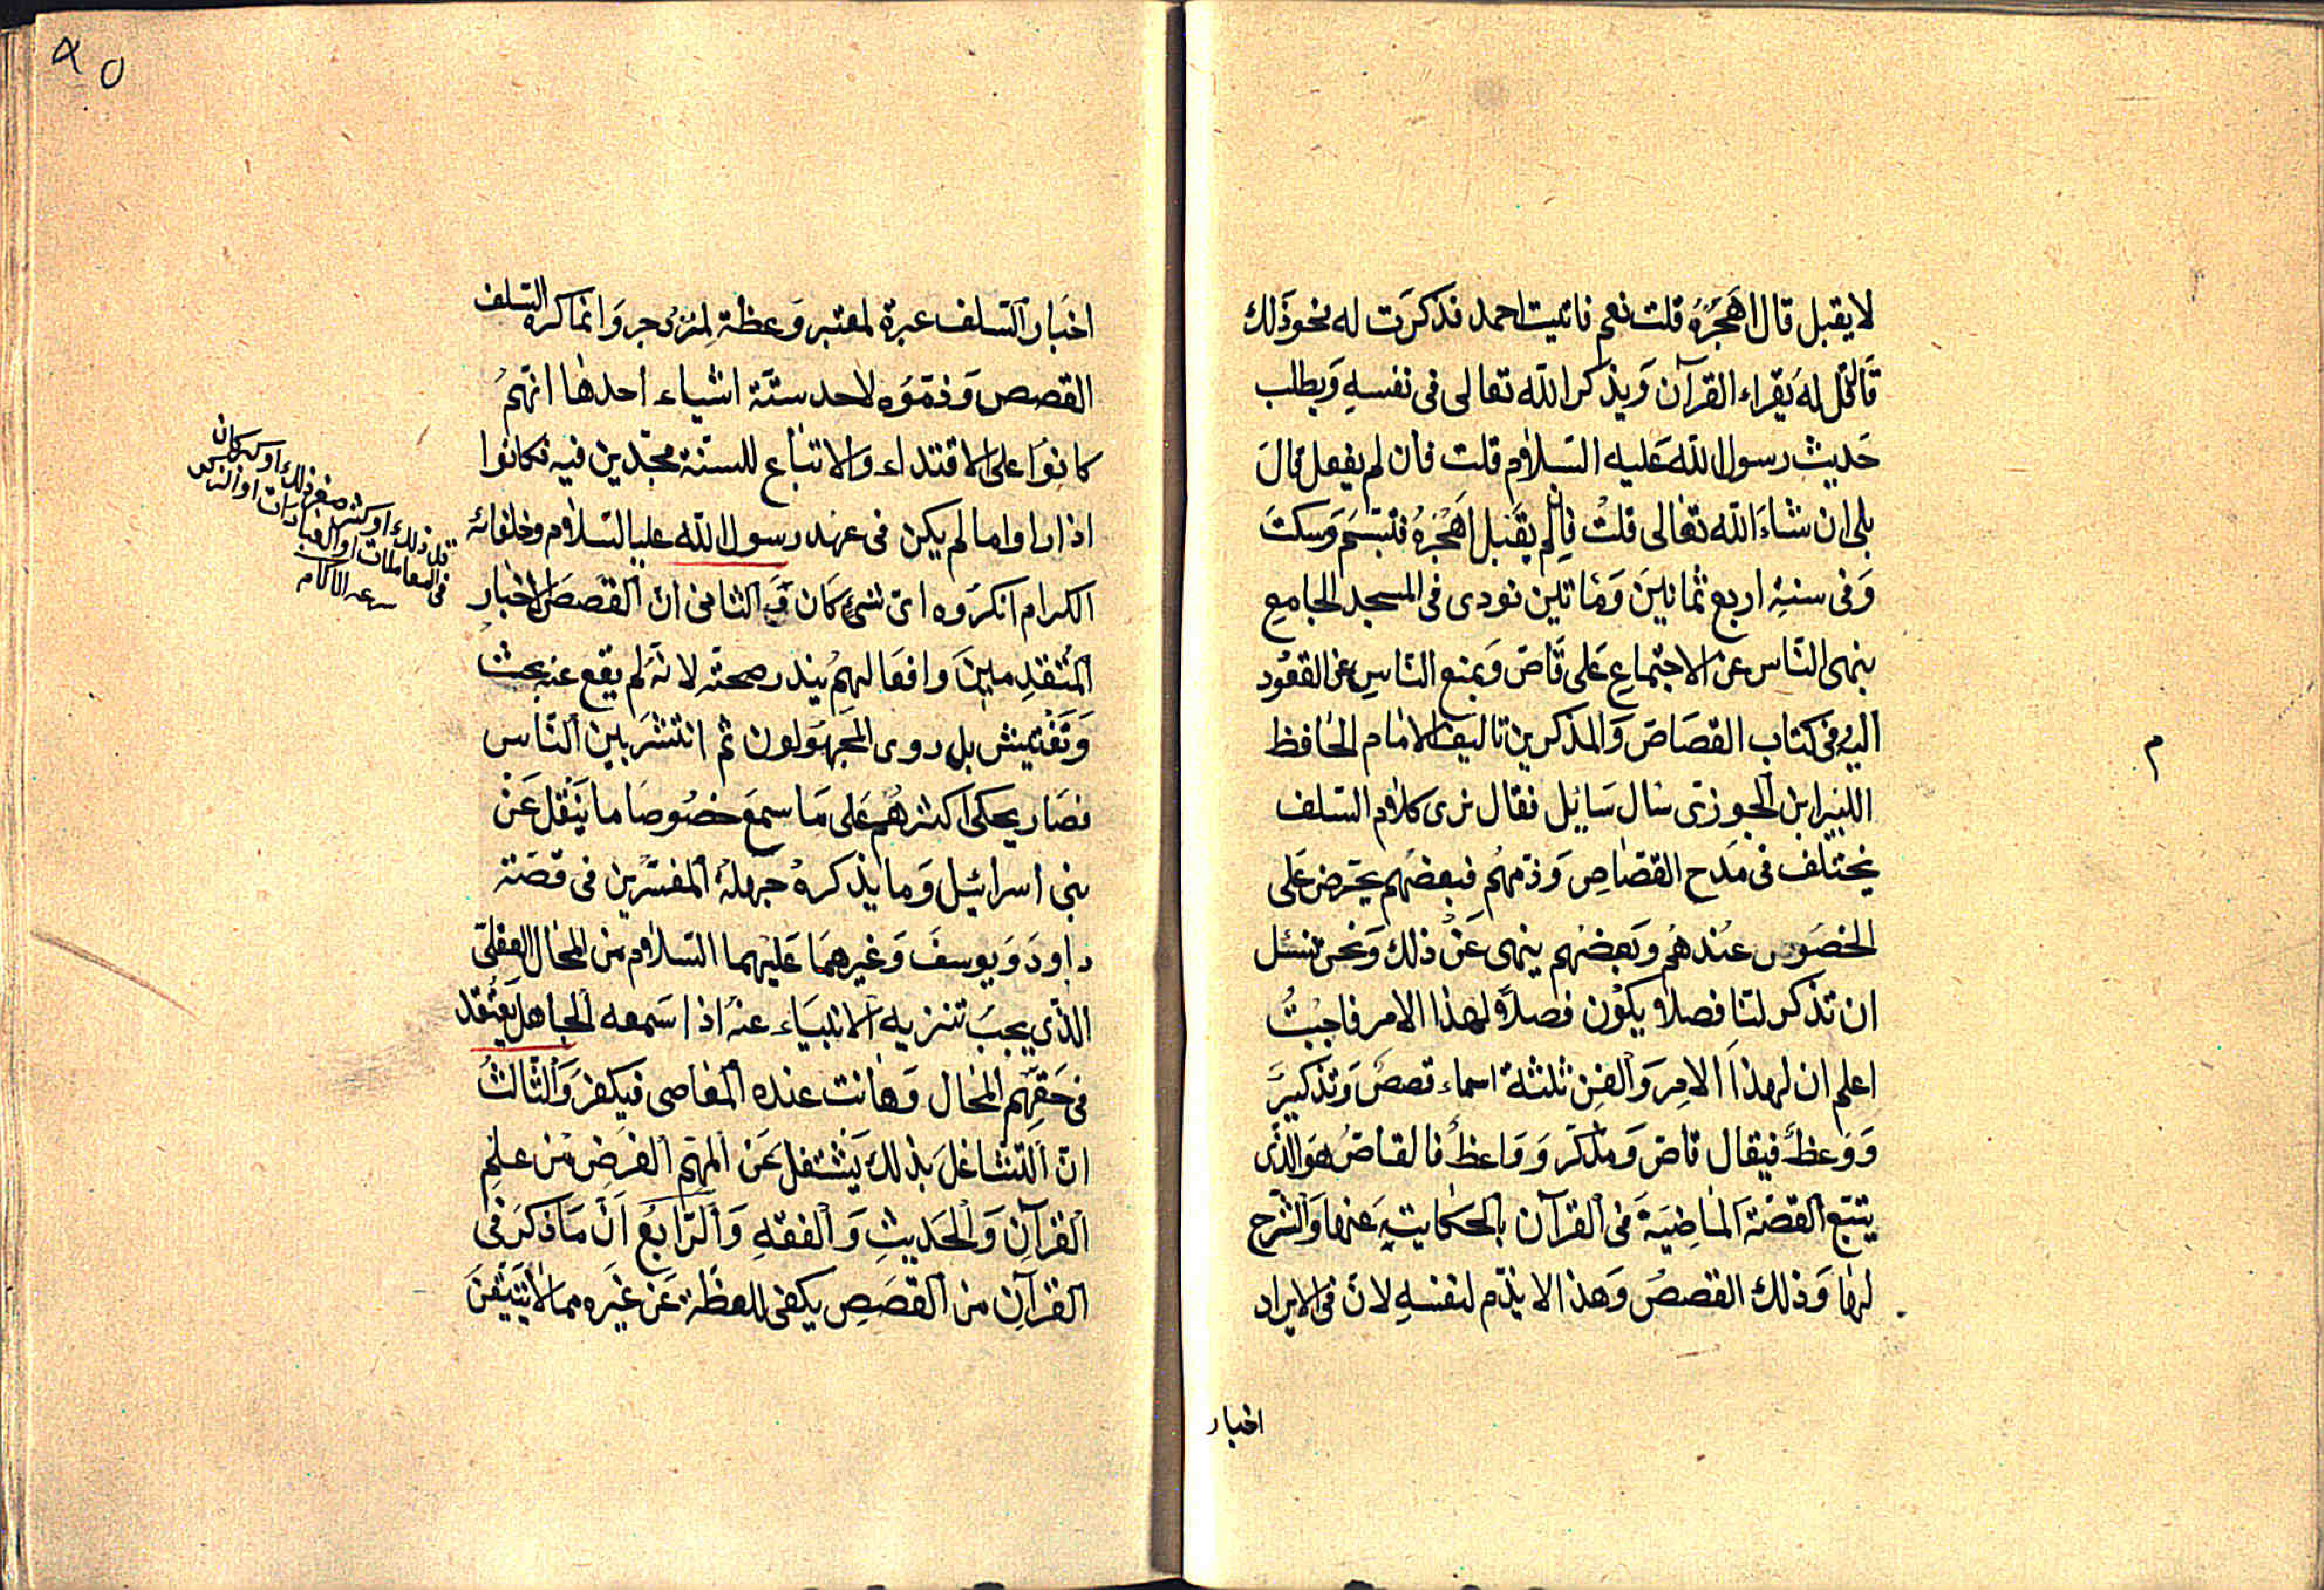 لا يقبل قال اَهْجُرُهُ قلت نعم فاتيت احمد فذكرَت له نحو ذَلك
قَالَ قل له يَقراء القرآن وَيذكر الله تعالى فى نفسهِ وَيطلب
حَديثِ رسول الله عَليه السَلام قلت فان لم يفعل قالَ
بلى ان شاءَ الله تعالى قلتْ فان لم يقبل اَهْجُرهُ فتبسَّمَ وَسكتَ
وَفى سنةِ اربع ثمانينَ وَمَاتين نودى فى المسجد الجامعِ
ينهى النَّاس عن الاجتماعِ عَلى قَاصّ وَيمنع النَّاسِ عن القعُود
اليهِ فى كتاب القصَاصَ وَالمذكرين تاليف الامام الحَافظ
ابن الجوزى سَال سَايل فقال نرى كلام السّلف
يختلف فى مَدح القصَّاصِ وَذمّهُم فبعضهُم يحرّض عَلى
الحضوُر عُندهُم وَبعضهُم ينهى عَنْ ذلك وَنحن نسئل
ان تذكر لنَا فصلا يكوُن فصلاً لهذا الامرِ فاجبْتُ
اعلم ان لهذَا الامِر وَالفنِ ثلثة اسماء قصصٌ وَتذكيرٌ
وَوَعظٌ فيقال قاصّ وَمذكّر وَوَاعظٌ فالقاصّ هوَ الَّذى
يتبّع القصَّة المَاضِيَةَ فى القرآن بالحكايتهِ عَنهَا وَالشرح
لهَا وَذلك القصصُ وَهذا لا يذّم لنفسهِ لانّ فى الايراد
اخبار
م
٩٥
اخبَار السّلف عبرة لمعتبر وَعظة لمُزدجر وَانما كره السّلف
القصص وَذمّوُه لاحد ستّة اشياء احدهَا انّهمُ
كانوُا على الاقتداء والاتبَاع للسنة مجّدين فيه فكانوا
اذا راوا ما لم يكن فى عهد رسول الله عليه السّلام وخلفائه
الكرام انكرُوه اىّ شئ كَان وَ الثانى ان القَصصَ لاخبَار
المُتقدِمينَ وَافعَالهِمُ يندر صحتّه لانّه لم يقع عنه بحث
وَتَفْتيش بل روى المجهُولون ثم انتشَر بين النّاس
فصَار يحكى اكثرهُم عَلى مَا سمعَ خصُوصَا ما ينْقل عَنْ
بنى اسرائيل وَما يذكرهُ جَهلةُ المفسّرين فى قصَّة
داودَ وَيوسفَ وَغيرهمَا عَليهما السّلام من المحَال العقلىّ
الذى يجبُ تنزيه الانبيَاء عنهُ اذا سَمعه الجاهل يعتقد
فى حَقهِّم المحَال وَهَانت عنده المعَاصى فيكفرَ وَالثّالثُ
انّ التشاغلَ بذلك يَشتغل عَن المهم الفرَضِ من علمِ
القرآنِ وَالحَديثِ وَالفقهِ وَالرّابعُ اَنّ مَا ذكرَ فى
القرآنِ من القصَصِ يكفى للعظة عَن غيَره مما لا يَتيقنَ
قل ذلك او كثر صغر ذلك او كبر كان
فى المعاملات او العبادات او